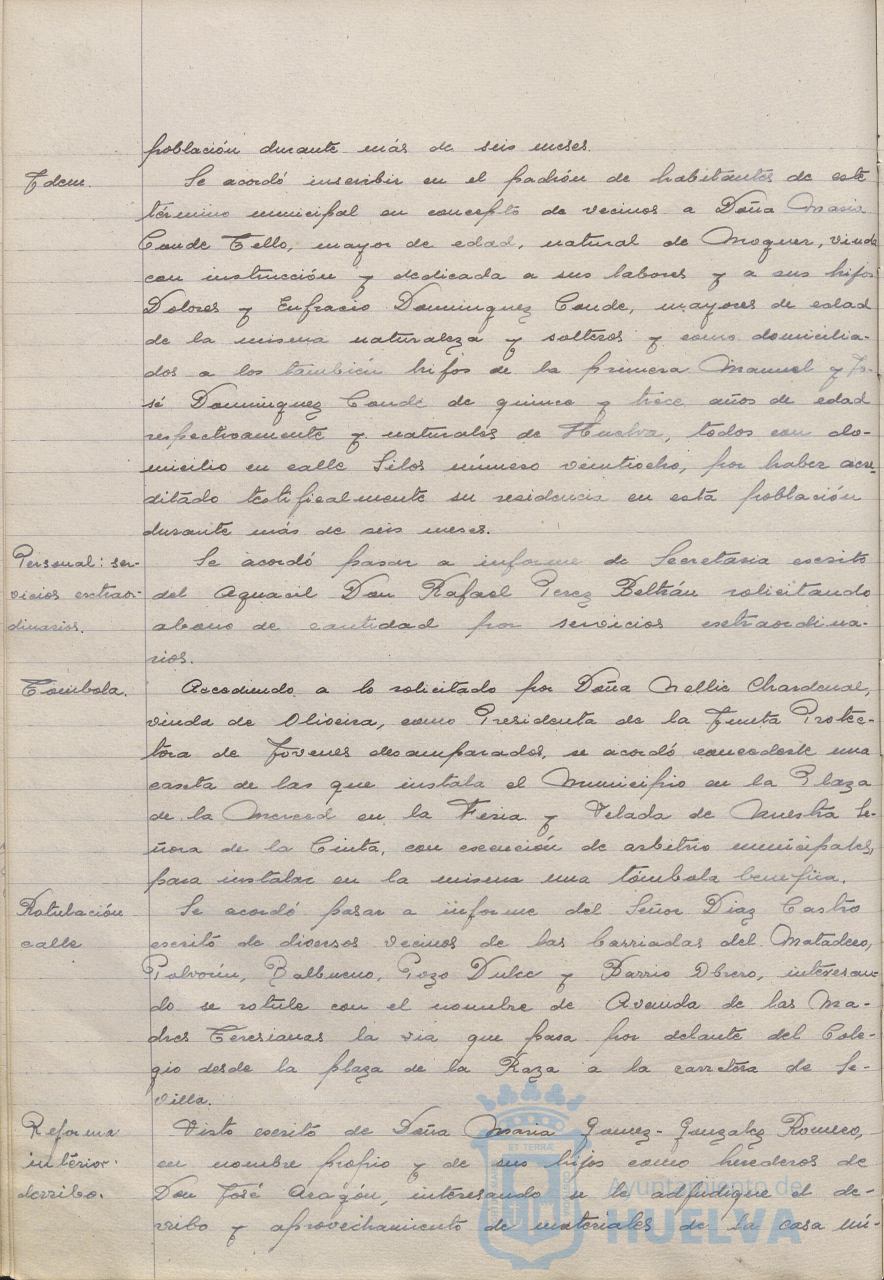 población durante más de seis meses.
Idem.
Se acordó inscribir en el padrón de habitantes de este
término municipal en concepto de vecinos a Doña Maria
Conde Tello, mayor de edad, natural de Moguer, viuda
con instrucción y dedicada a sus labores y a sus hijos
Dolores y Enfracio Dominguez Conde, mayores de edad
de la misma naturaleza y solteros y como domicilia-
dos a los también hijos de la primera Manuel y Jo-
sé Dominguez Conde de quince y trece años de edad
respectivamente y naturales de Huelva, todos con do-
micilio en calle Silos número veintiocho, por haber acre-
ditado testificalmente su residencia en esta población
durante más de seis meses.
Personal: ser-
vicios extraor-
dinarios.
Se acordó pasar a informe de Secretaria escrito
del Aguacil Don Rafael Perez Beltrán solicitando
abono de cantidad por servicios extraordina-
rios.
Tómbola.
Accediendo a lo solicitado por Doña Nellie Chardenal,
viuda de Oliveira, como Presidenta de la Junta Protec-
tora de Jovenes desamparados, se acordó concederle una
caseta de las que instala el Municipio en la Plaza
de la Merced en la Feria y Velada de Nuestra Se-
ñora de la Cinta, con exención de arbitrio municipales,
para instalar en la misma una tómbola benefica.
Rotulación
calle
Se acordó pasar a informe del Señor Diaz Castro
escrito de diversos vecinos de las barriadas del Matadero,
Polvorin, Balbueno, Pozo Dulce y Barrio Obrero, interesan-
do se rotule con el nombre de Avenda de las Ma-
dres Teresianas la via que pasa por delante del Cole-
gio desde la plaza de la Raza a la carretera de Se-
villa.
Reforma
interior:
derribo.
Visto escrito de Doña Maria Gomez-Gonzalez Romero,
en nombre propio y de sus hijos como herederos de
Don José Aragón, interesando se le adjudique el de-
rribo y aprovechamiento de materiales de la casa nú-
ET TERRÆ
Ayuntamiento de
HUELVA